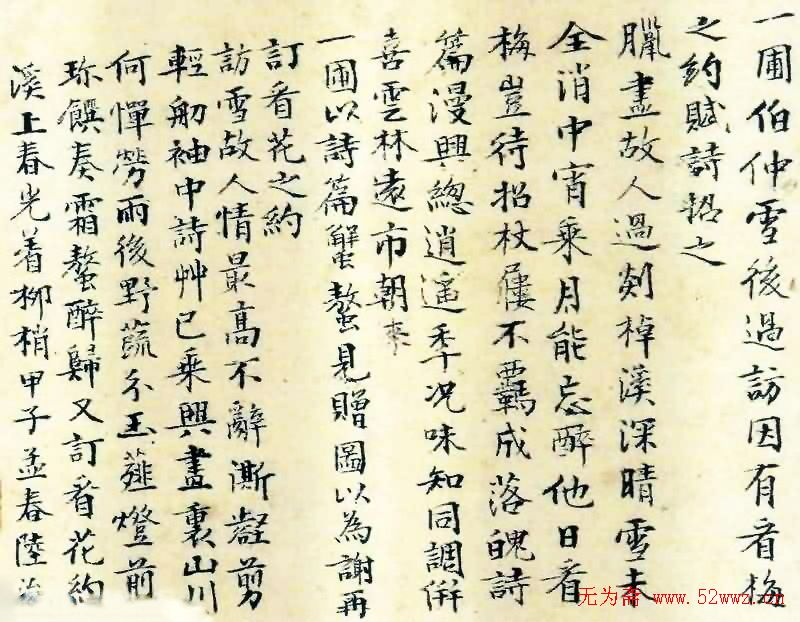 一圃伯仲雪後過訪因有看梅
之約賦詩招之
臘盡故人過剡棹溪深晴雪未
全消中宵乘月能忘醉他日看
梅豈待招杖屨不羈成落魄詩
篇漫興總逍遥季况味知同調併
喜雲林遠市朝來
一圃以詩篇蟹螯見贈圖以為謝再
訂看花之約
訪雪故人情最高不辭澌壑剪
輕舠袖中詩艸已乘興畫裏山川
何憚勞雨後野蔬分玉薤燈前
珎饌奏霜螯醉歸又訂看花約
溪上春光着柳梢甲子孟春陸治
无为斋 www.52wwz.cn